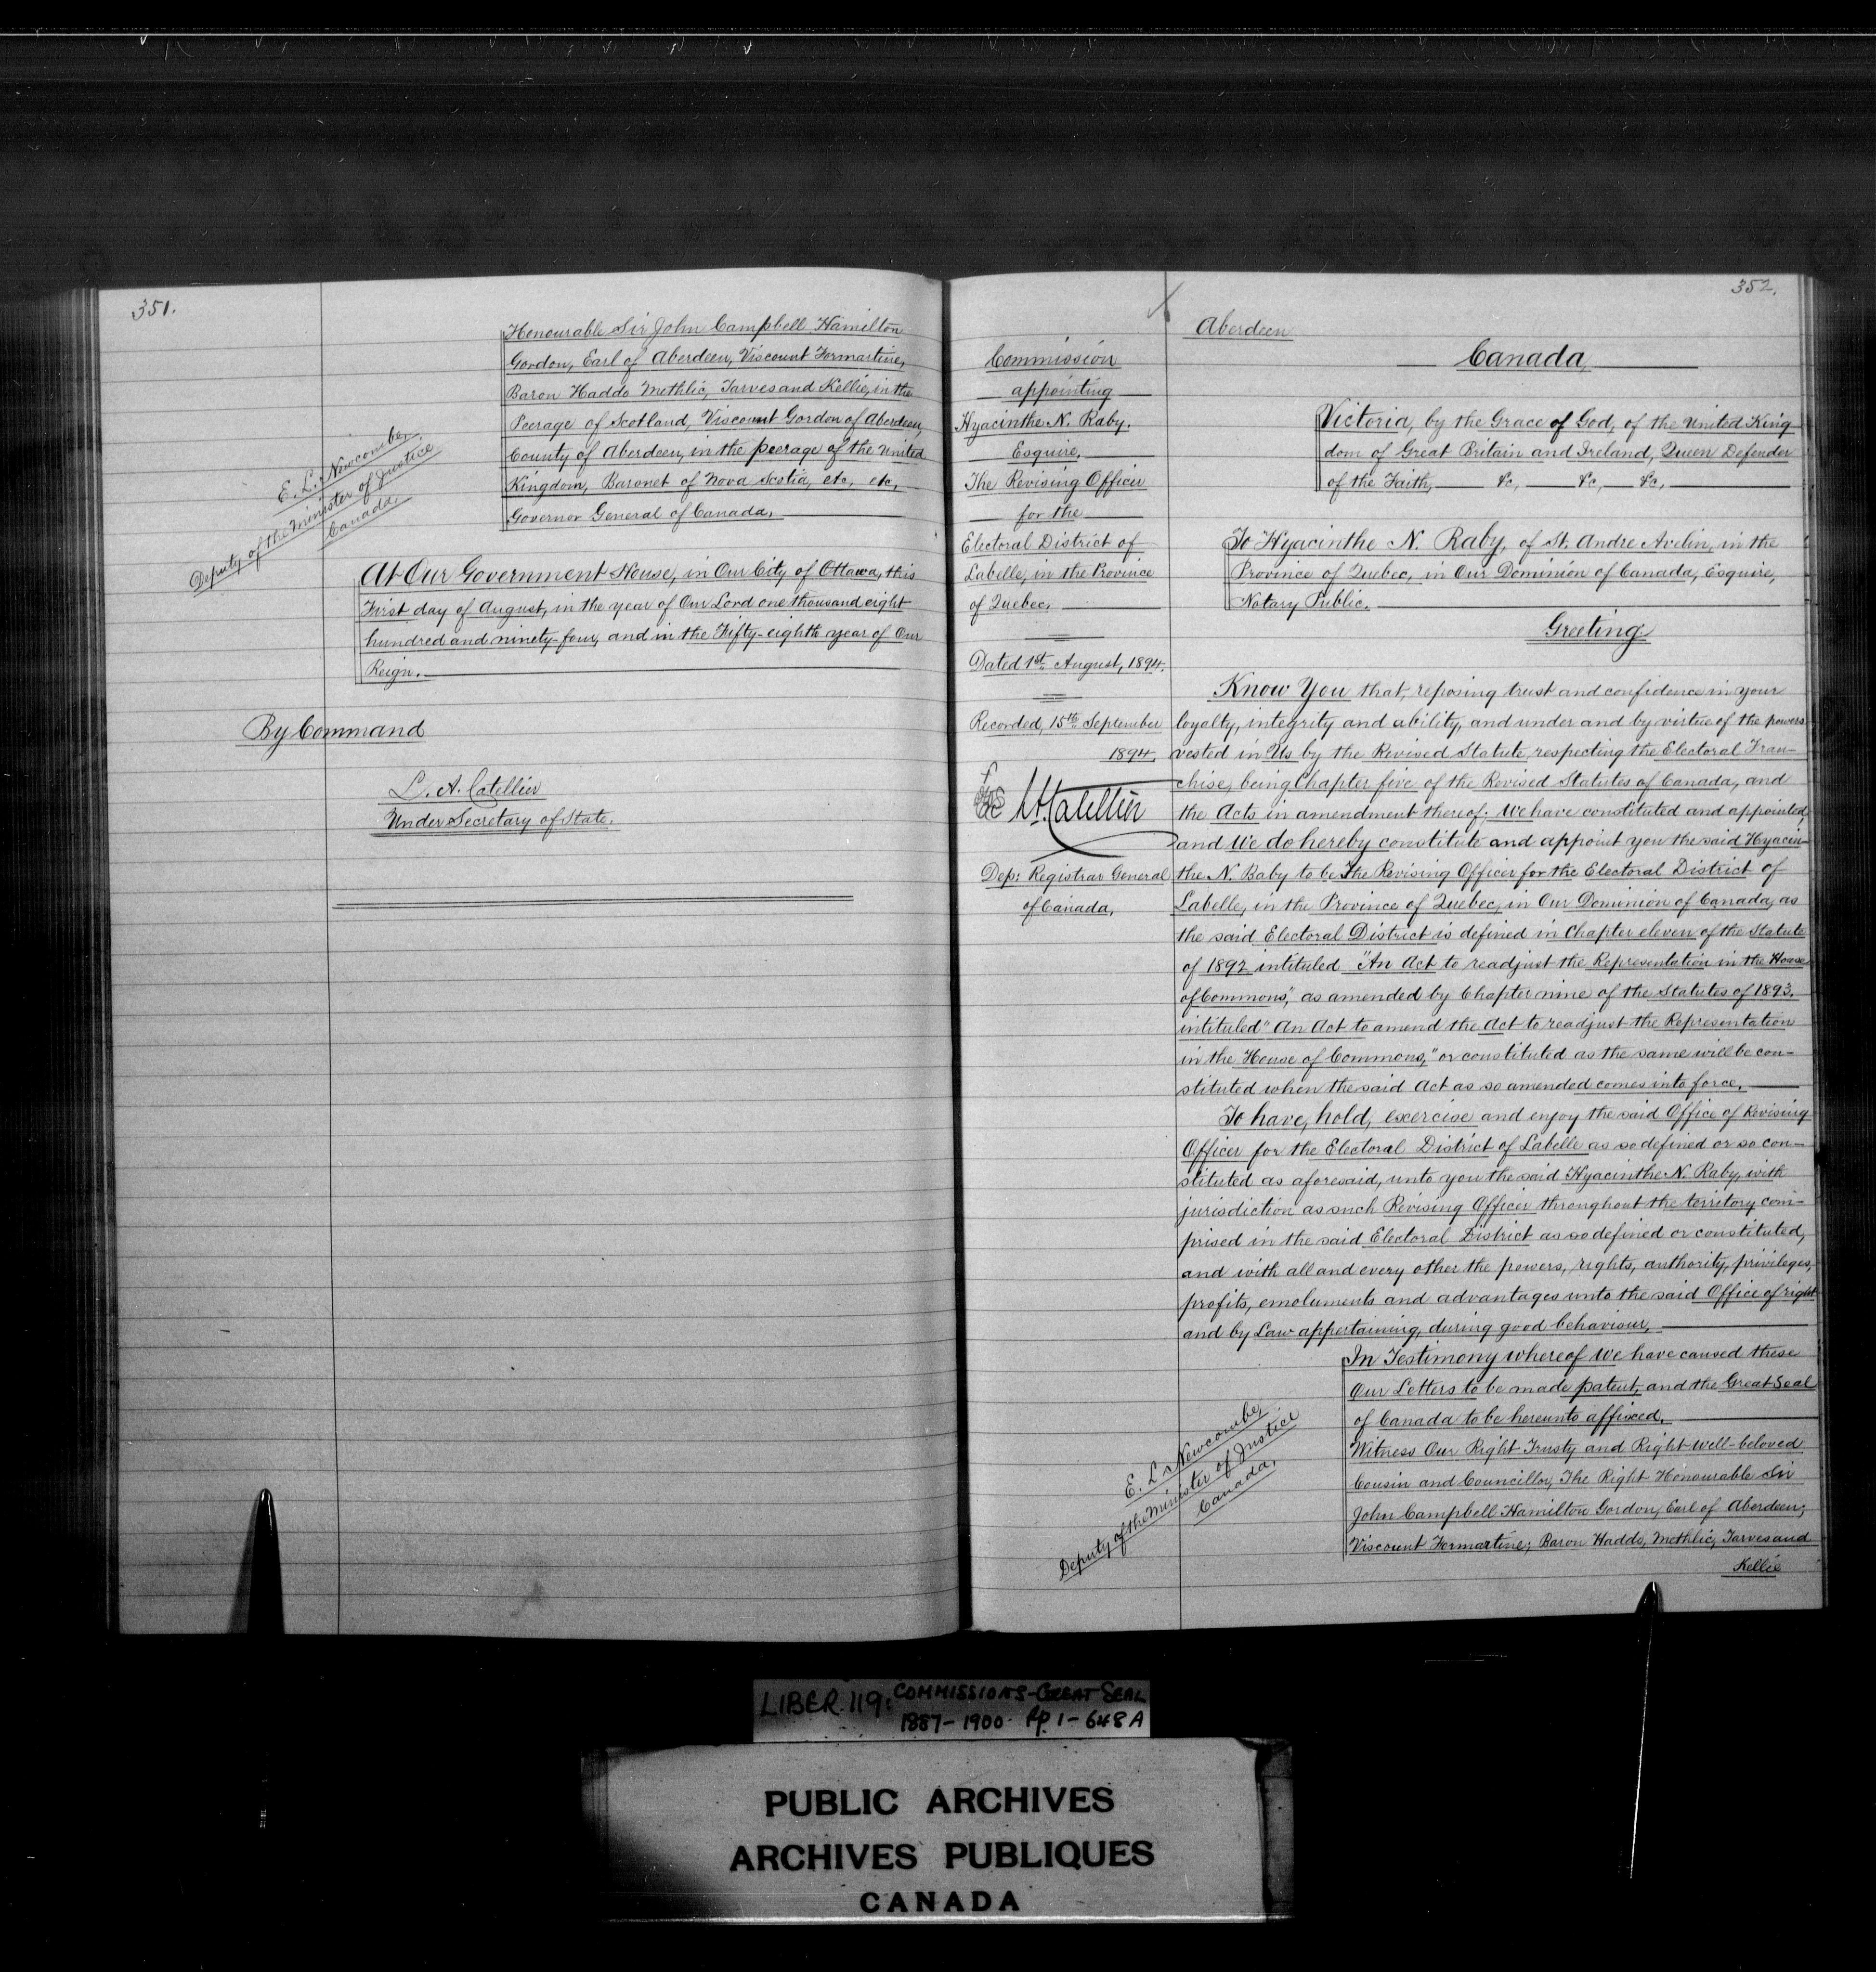 351.
Honourable Sir John Campbell Hamilton
Gordon, Earl of Aberdeen, Viscount Formartine,
Baron Haddo Methlic, Tarves and Kellie, in the
Peerage of Scotland, Viscount Gordon of Aberdeen,
County of Aberdeen, in the peerage of the United
Kingdom, Baronet of Nova Scotia, etc, etc,
Governor General of Canada.
E. L. Newcombe,
Deputy of the Minister of Justice
Canada.
At Our Government House, in Our City of Ottawa, this
First day of August, in the year of Our Lord one thousand eight
hundred and ninety-four, and in the Fifty-eighth year of Our
Reign.
By Command
L. A. Catellier
Under Secretary of State.
352.
Commission
appointing
Hyacinthe N. Raby.
Esquire,
The Revising Officer
for the
Electoral District of
Labelle, in the Province
of Quebec.
Dated 1st August, 1894.
Recorded, 15th September
1894.
Catellier
Dep: Registrar General
of Canada,
Aberdeen
Canada,
Victoria, by the Grace of God, of the United King
dom of Great Britain and Ireland, Queen Defender
of the Faith, &c, &c, &c,
To Hyacinthe N. Raby, of St. Andre Avelin, in the
Province of Quebec, in Our Dominion of Canada, Esquire,
Notary Public.
Greeting
Know You that, reposing trust and confidence in your
loyalty, integrity and ability, and under and by virtue of the powers
vested in Us by the Revised Statute respecting the Electoral Fran-
chise, being Chapter five of the Revised Statutes of Canada, and
the Acts in amendment thereof; We have constituted and appointed,
and We do hereby constitute and appoint you the said Hyacin-
the N. Raby to be The Revising Officer for the Electoral District of
Labelle, in the Province of Quebec, in Our Dominion of Canada, as
the said Electoral District is defined in Chapter eleven of the Statute
of 1892 intituled "An Act to readjust the Representation in the House
of Commons", as amended by Chapter nine of the Statutes of 1893.
intituled "An Act to amend the Act to readjust the Representation
in the House of Commons," or constituted as the same will be con-
stituted when the said Act as so amended comes into force.
To have, hold, exercise and enjoy the said Office of Revising
Officer for the Electoral District of Labelle as so defined or so con-
stituted as aforesaid, unto you the said Hyacinthe N. Raby, with
jurisdiction as such Revising Officer throughout the territory com-
prised in the said Electoral District as so defined or constituted,
and with all and every other the powers, rights, authority, privileges,
profits, emoluments and advantages unto the said Office of right
and by Law appertaining, during good behaviour,
In Testimony whereof We have caused these
Our Letters to be made patent, and the Great Seal
of Canada to be hereunto affixed.
Witness Our Right Trusty and Right well-beloved
Cousin and Councillor, The Right Honourable Sir
John Campbell Hamilton Gordon, Earl of Aberdeen;
Viscount Formartine; Baron Haddo, Methlic, Tarves and
Kellie
E. L. Newcombe,
Deputy of the Minister of Justice
Canada.
LIBER 119: COMMISSIONS-GREAT SEAL
1887-1900 Pp 1-648A
PUBLIC ARCHIVES
ARCHIVES PUBLIQUES
CANADA